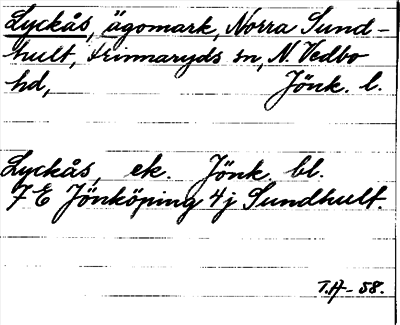 Lyckås, ägomark, Norra Sund-
hult, Frinnaryds sn, N. Vedbo
hd, Jönk. l.
Lyckås, ek. Jönk. bl.
7 E Jönköping 4 j Sundhult.
T.A-58.